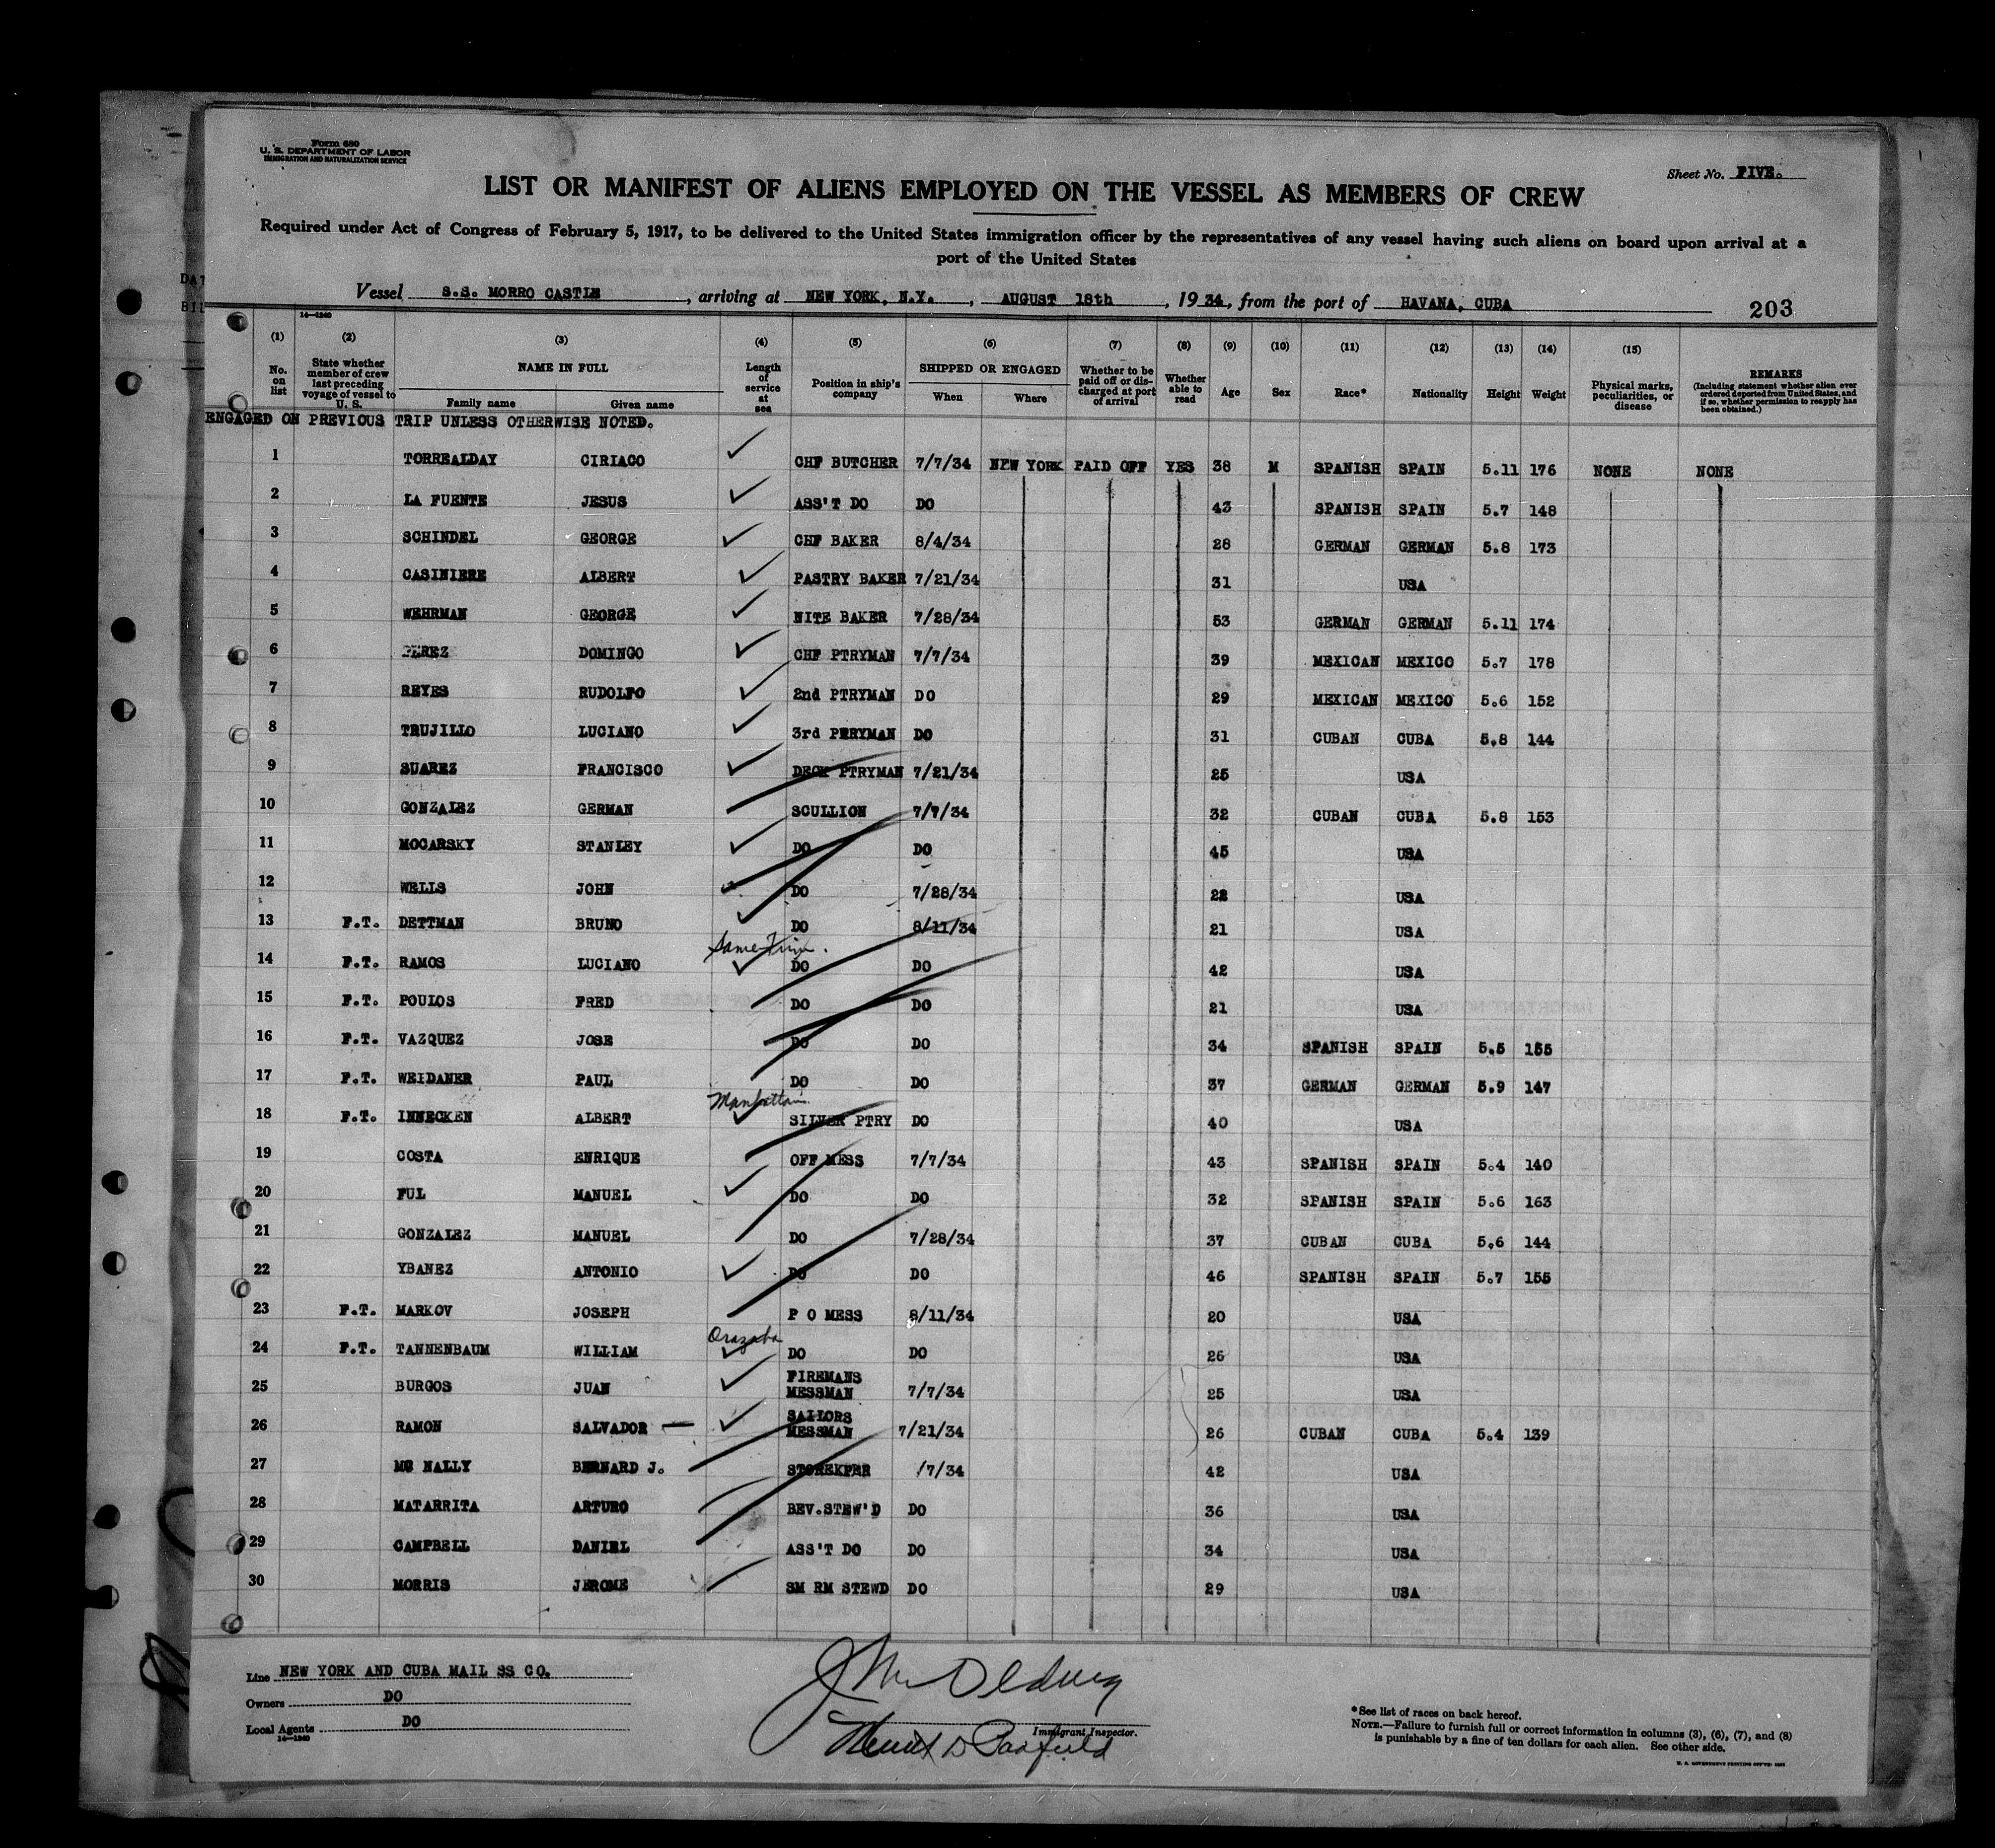 Form 680
U. S. DEPARTMENT OF LABOR
IMMIGRATION AND NATURALIZATION SERVICE
Sheet No. FIVE.
LIST OR MANIFEST OF ALIENS EMPLOYED ON THE VESSEL AS MEMBERS OF CREW
Required under Act of Congress of February 5, 1917, to be delivered to the United States immigration officer by the representatives of any vessel having such aliens on board upon arrival at a
port of the United States
Vessel S.S. MORRO CASTLE, arriving at NEW YORK, N.Y., AUGUST 18th, 1934, from the port of HAVANA, CUBA
203
14-1240
(1) No. on list (2) State whether member of crew last preceding voyage of vessel to U. S. (3) NAME IN FULL Family name Given name (4) Length of service at sea (5) Position in ship's company (6) SHIPPED OR ENGAGED When Where (7) Whether to be paid off or discharged at port of arrival (8) Whether able to read (9) Age (10) Sex (11) Race* (12) Nationality (13) Height (14) Weight (15) Physical marks, peculiarities, or disease REMARKS (Including statement whether alien ever ordered deported from United States, and if so, whether permission to reapply has been obtained.)
ENGAGED ON PREVIOUS TRIP UNLESS OTHERWISE NOTED.
1 TORREALDAY CIRIACO CHF BUTCHER 7/7/34 NEW YORK PAID OFF YES 38 M SPANISH SPAIN 5.11 176 NONE NONE
2 LA FUENTE JESUS ASS'T DO DO 43 SPANISH SPAIN 5.7 148
3 SCHINDEL GEORGE CHF BAKER 8/4/34 28 GERMAN GERMAN 5.8 173
4 CASINIERE ALBERT PASTRY BAKER 7/21/34 31 USA
5 WEHRMAN GEORGE NITE BAKER 7/28/34 53 GERMAN GERMAN 5.11 174
6 PEREZ DOMINGO CHF PTRYMAN 7/7/34 39 MEXICAN MEXICO 5.7 178
7 REYES RUDOLFO 2nd PTRYMAN DO 29 MEXICAN MEXICO 5.6 152
8 TRUJILLO LUCIANO 3rd PERYMAN DO 31 CUBAN CUBA 5.8 144
9 SUAREZ FRANCISCO DECK PTRYMAN 7/21/34 25 USA
10 GONZALEZ GERMAN SCULLION 7/7/34 32 CUBAN CUBA 5.8 153
11 MOCARSKY STANLEY DO DO 45 USA
12 WELLS JOHN DO 7/28/34 22 USA
13 F.T. DETTMAN BRUNO DO 8/11/34 21 USA
Same
14 F.T. RAMOS LUCIANO DO DO 42 USA
15 F.T. POULOS FRED DO DO 21 USA
16 F.T. VAZQUEZ JOSE DO DO 34 SPANISH SPAIN 5.5 155
17 F.T. WEIDANER PAUL DO DO 37 GERMAN GERMAN 5.9 147
Manhattan
18 F.T. INNECKEN ALBERT SILVER PTRY DO 40 USA
19 COSTA ENRIQUE OFF MESS 7/7/34 43 SPANISH SPAIN 5.4 140
20 FUL MANUEL DO DO 32 SPANISH SPAIN 5.6 163
21 GONZALEZ MANUEL DO 7/28/34 37 CUBAN CUBA 5.6 144
22 YBANEZ ANTONIO DO DO 46 SPANISH SPAIN 5.7 155
23 F.T. MARKOV JOSEPH P O MESS 8/11/34 20 USA
Orazaba
24 F.T. TANNENBAUM WILLIAM DO DO 26 USA
25 BURGOS JUAN FIREMANS MESSMAN 7/7/34 25 USA
26 RAMON SALVADOR — SAILORS MESSMAN 7/21/34 26 CUBAN CUBA 5.4 139
27 MC NALLY BERNARD J. STOREKPER /7/34 42 USA
28 MATARRITA ARTURO BEV.STEW'D DO 36 USA
29 CAMPBELL DANIEL ASS'T DO DO 34 USA
30 MORRIS JEROME SM RM STEWD DO 29 USA
Line NEW YORK AND CUBA MAIL SS CO.
Owners DO
Local Agents DO
14-1240
Immigrant Inspector.
*See list of races on back hereof.
NOTE.—Failure to furnish full or correct information in columns (3), (6), (7), and (8)
is punishable by a fine of ten dollars for each alien. See other side.